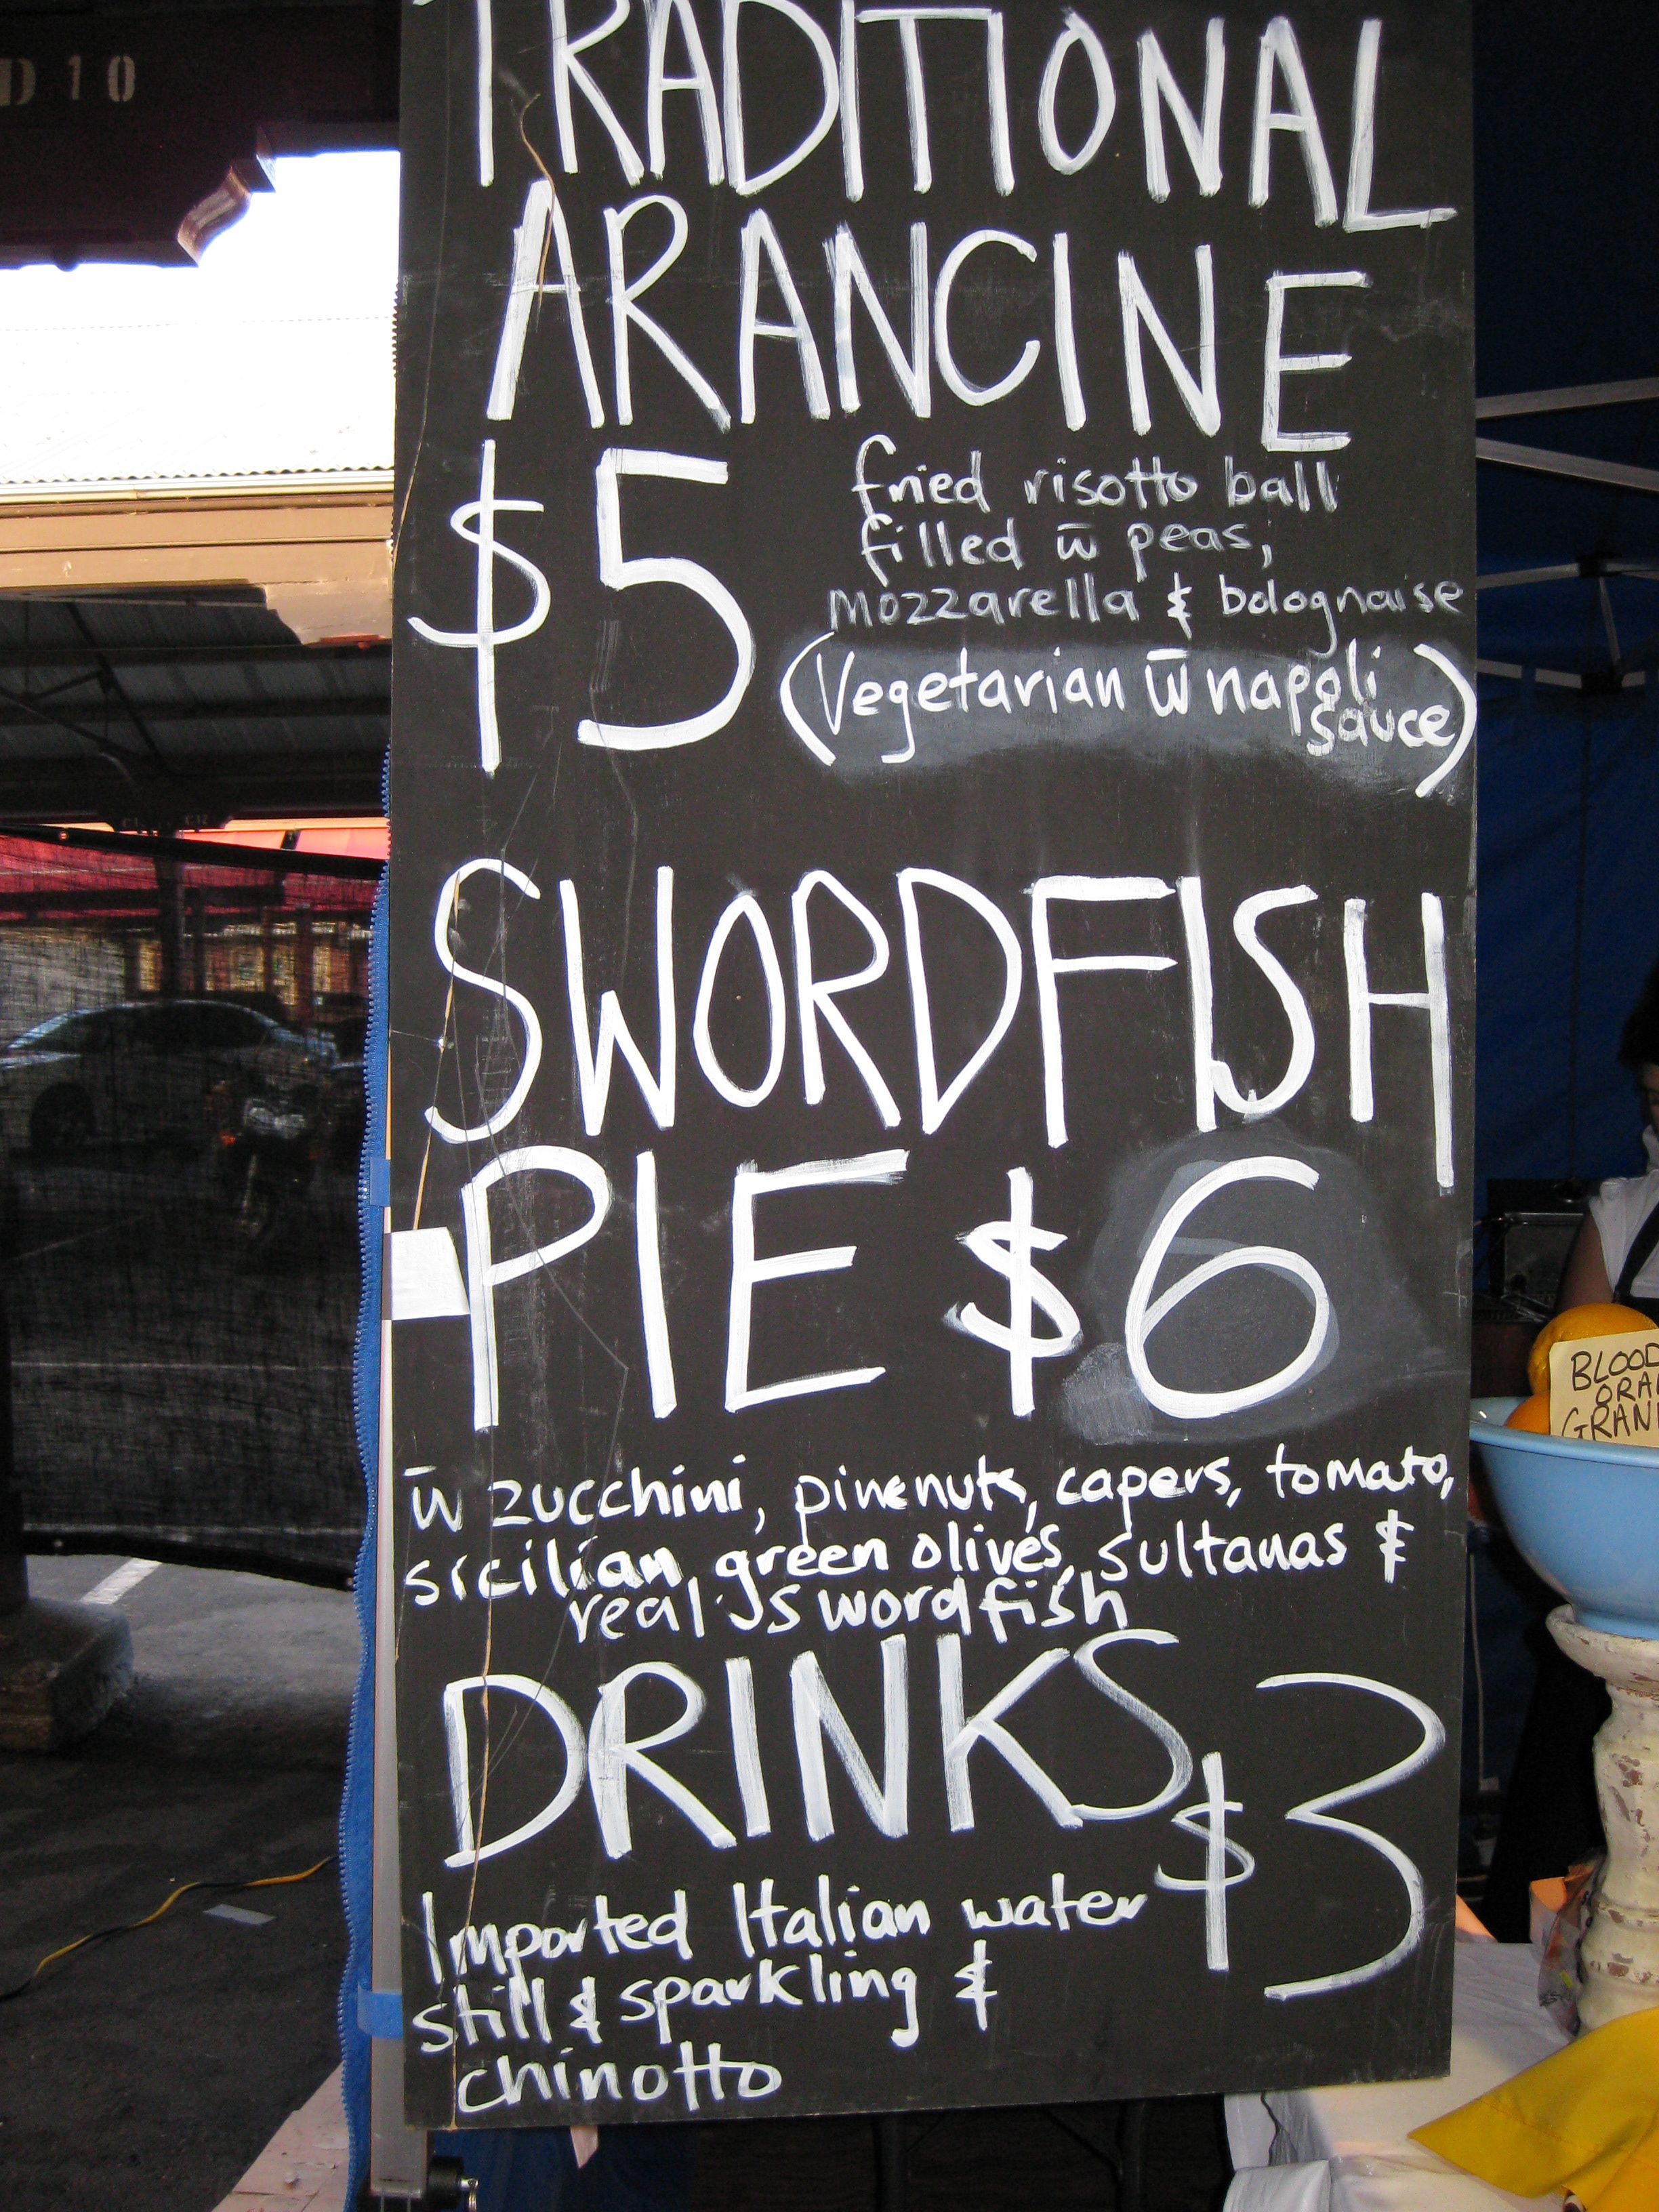 D 10
TRADITIONAL
ARANCINE
$5
fried risotto ball
filled w̄ peas,
mozzarella & bolognaise
(Vegetarian w̄ napoli
sauce)
SWORDFISH
PIE $6
w̄ zucchini, pinenuts, capers, tomato,
sicilian green olives, sultanas &
real swordfish
DRINKS $3
Imported Italian water
still & sparkling &
chinotto
BLOOD
ORA
GRAN